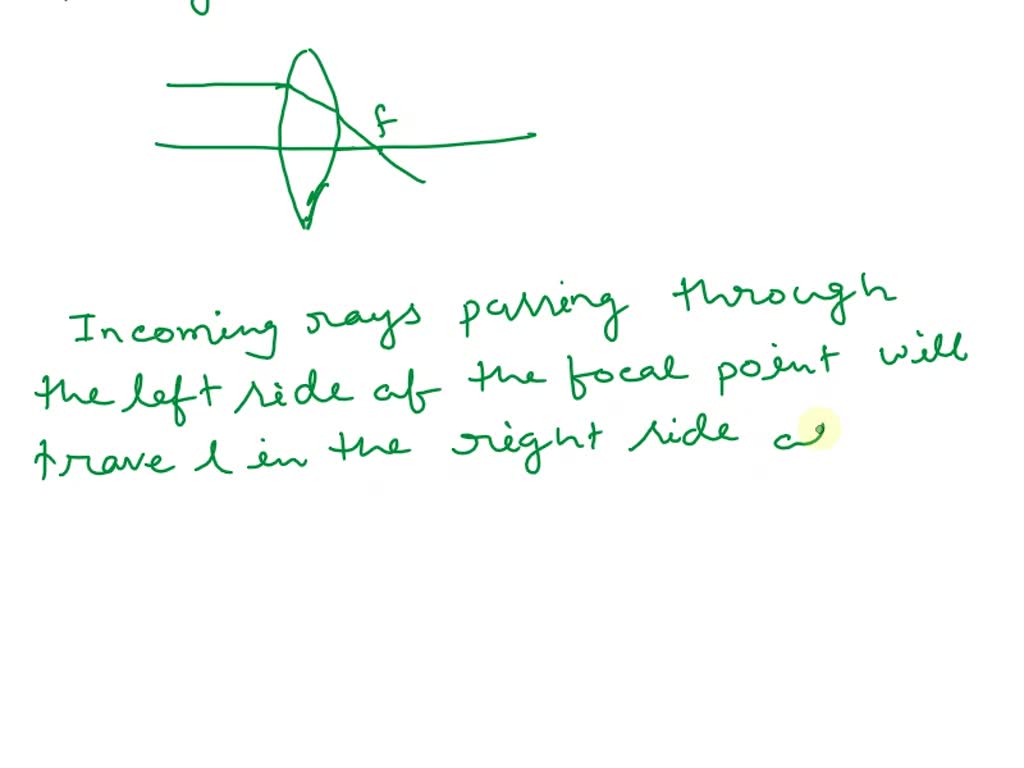 f
Incoming rays passing through
the left side of the focal point will
travel in the right side